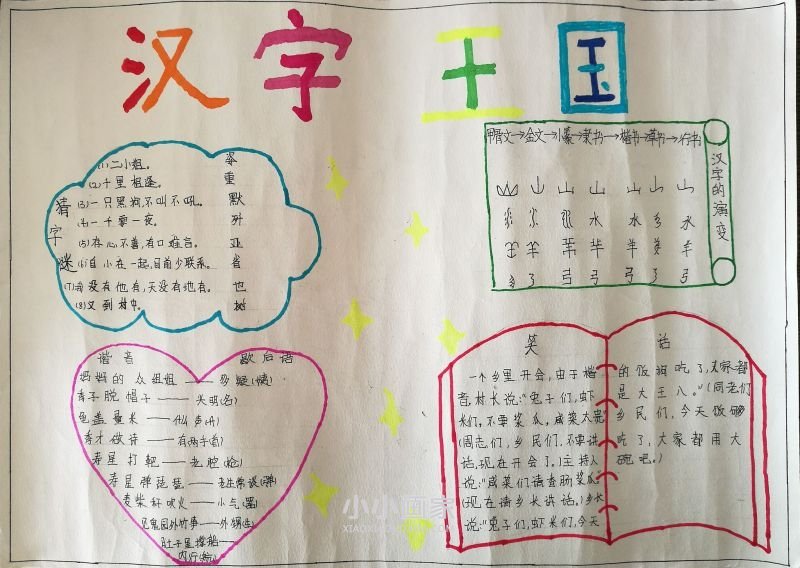 汉字王国
猜字谜
(1)二小姐。 姿
(2)千里相逢。 重
(3)一只黑狗,不叫不吼。 默
(4)一千零一夜。 歼
(5)有心不善,有口难言。 亚
(6)自小在一起,目前少联系。 省
(7)你没有他有,天没有地有。 也
(8)又到村中。 树
汉字的演变
甲骨文→金文→小篆→隶书→楷书→草书→行书
山 山 山 山 山 山
水 水 水
羊 羊 羊 羊
弓 弓 弓 弓
谐音 歇后语
妈妈的众姐姐——多疑(姨)
孝子脱帽子——失明(名)
鱼盖量米——什么声(升)
秀才做诗——有两子(字)
寿星打靶——老腔(枪)
寿星弹琵琶——老生常谈(弹)
麦柴杆吹火——小气(器)
外甥(生)
肚子里撑船——
内行(航)
笑话
一个乡里开会,由于楷
音,村长说:"兔子们,虾
米们,不要浆瓜,咸菜太贵"
(同志们,乡民们,不要讲
话,现在开会了。)主持人
说:"咸菜们请香肠浆瓜"
(现在请乡长讲话。)乡长
说:"兔子们,虾米们,今天
的饭狗吃了,大家都
是大王八。"(同老们
乡民们,今天饭够
吃了,大家都用大
碗吧。)
小小画家